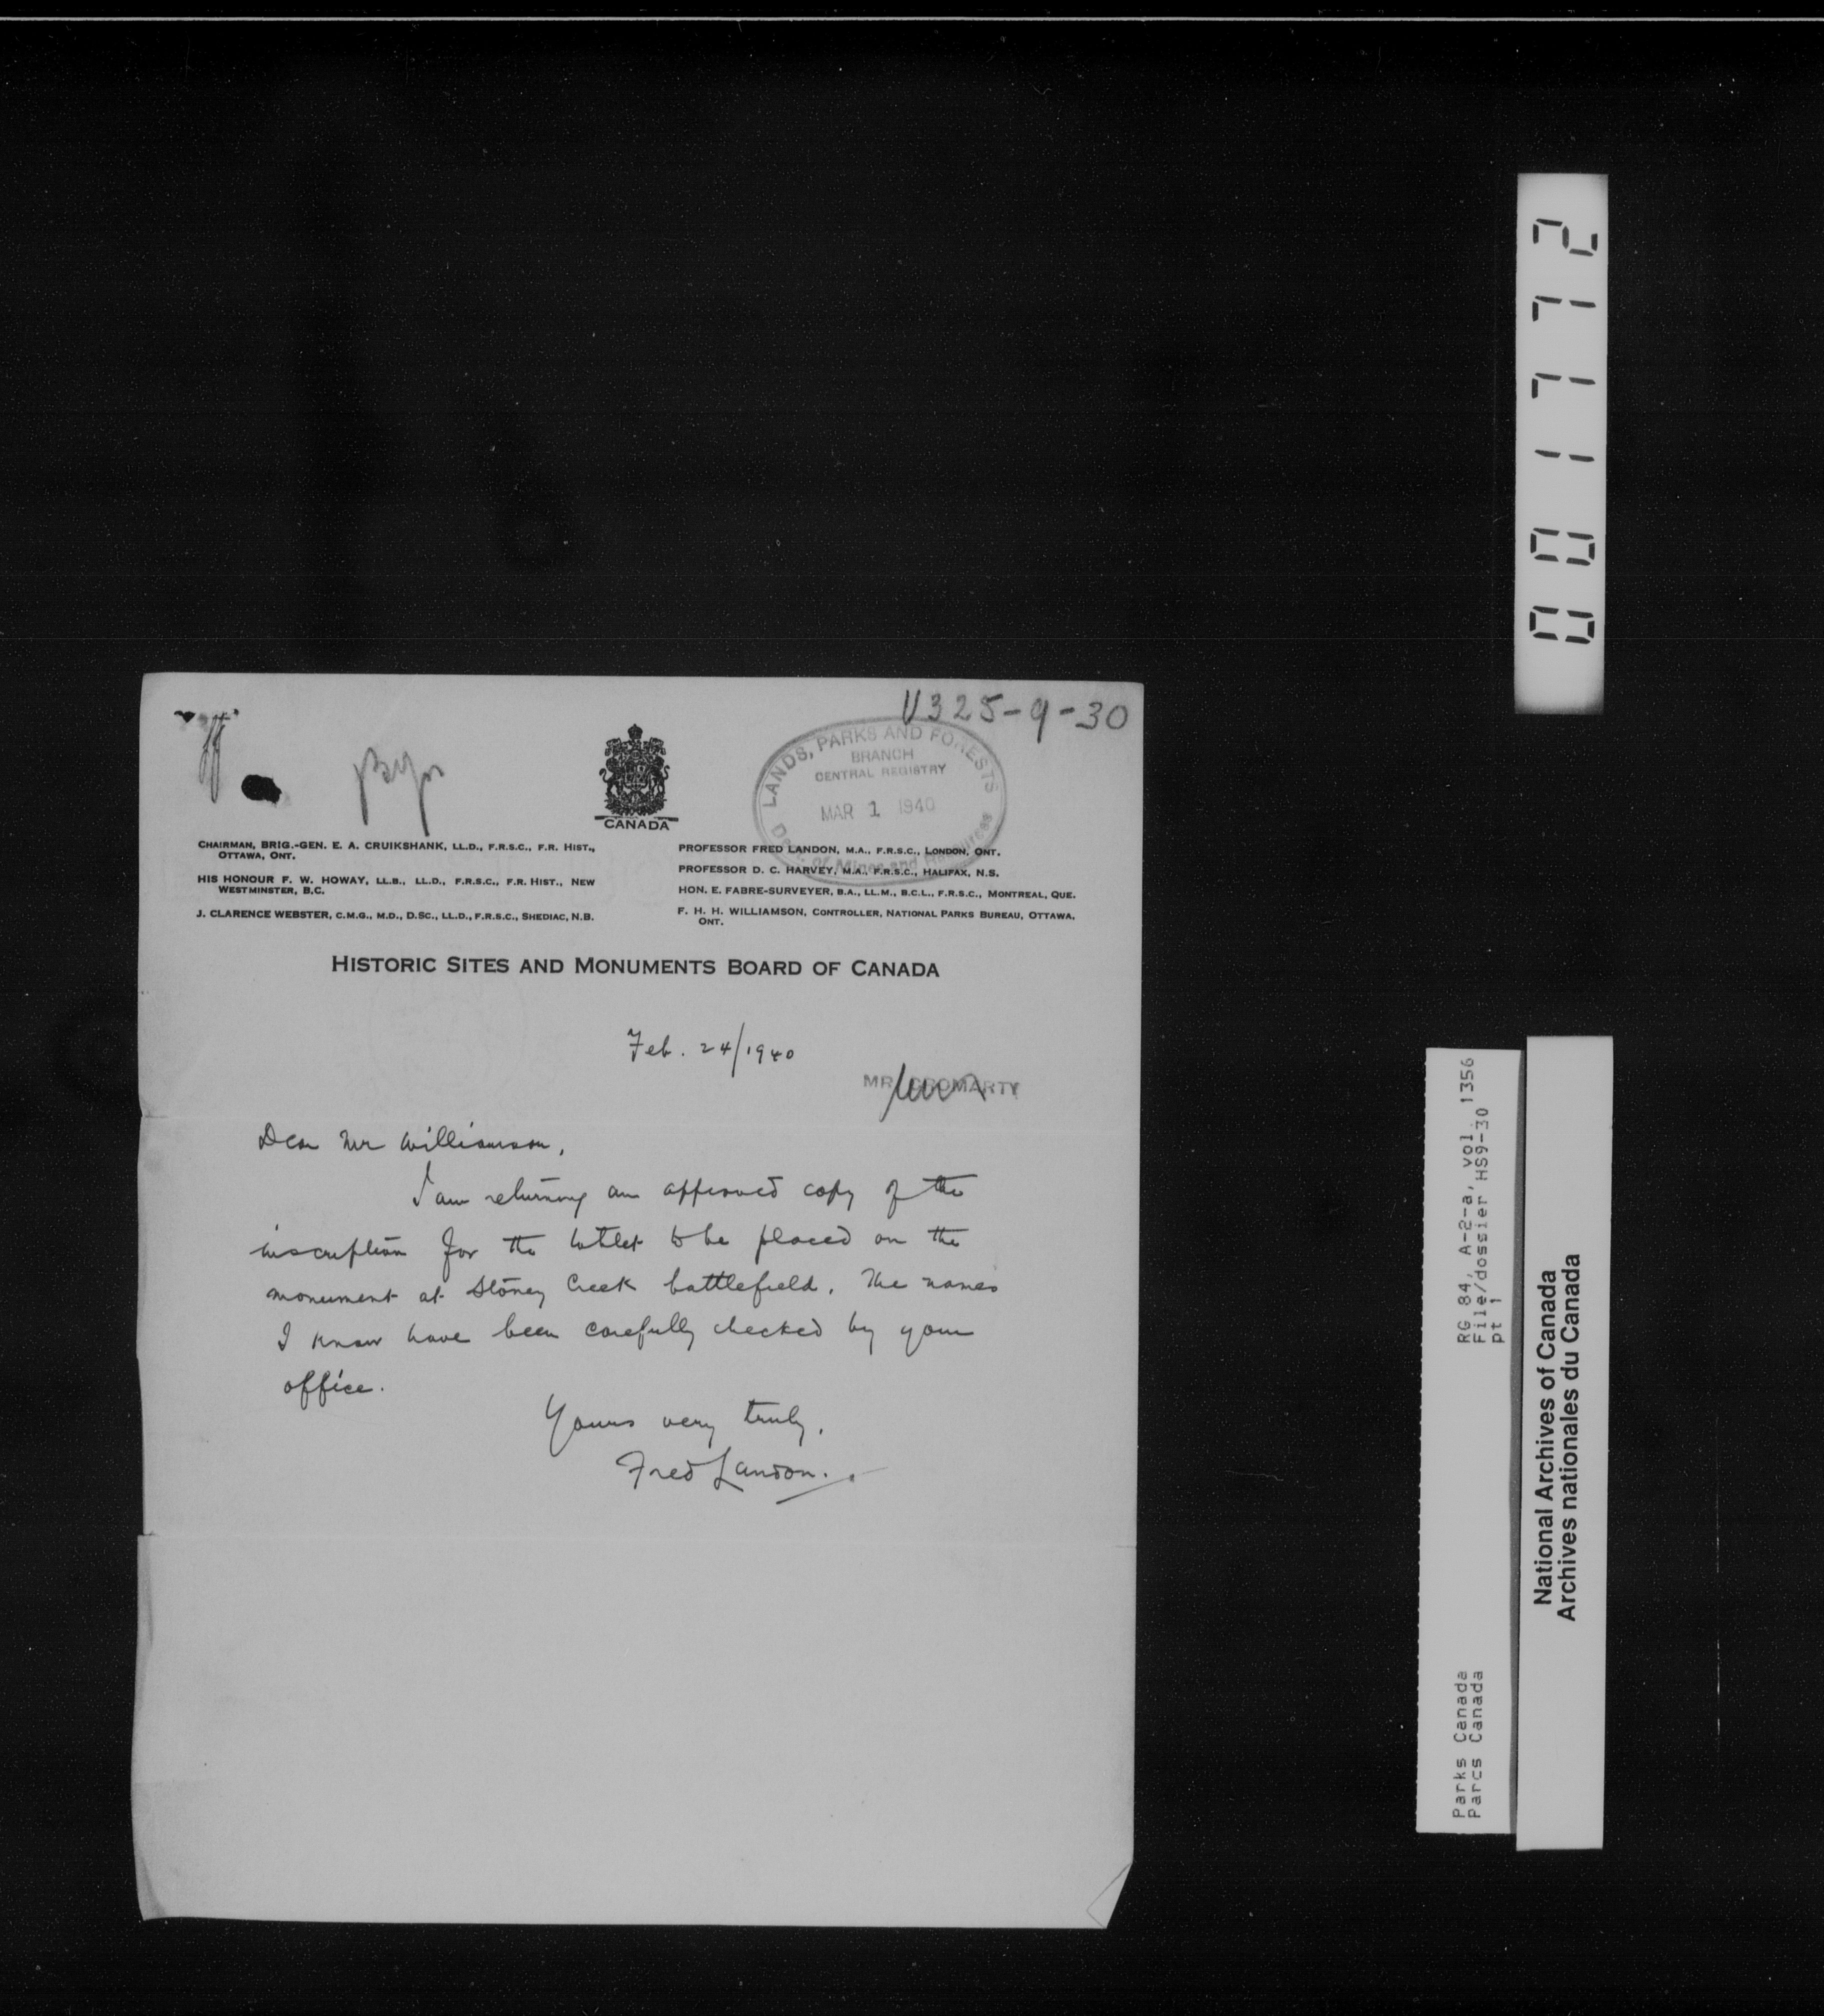 U325-9-30
LANDS, PARKS AND FORESTS
BRANCH
CENTRAL REGISTRY
MAR 1 1940
Dept. of Mines and Resources
CANADA
CHAIRMAN, BRIG.-GEN. E. A. CRUIKSHANK, LL.D., F.R.S.C., F.R. HIST.,
OTTAWA, ONT.
HIS HONOUR F. W. HOWAY, LL.B., LL.D., F.R.S.C., F.R. HIST., NEW
WESTMINSTER, B.C.
J. CLARENCE WEBSTER, C.M.G., M.D., D.SC., LL.D., F.R.S.C., SHEDIAC, N.B.
PROFESSOR FRED LANDON, M.A., F.R.S.C., LONDON, ONT.
PROFESSOR D. C. HARVEY, M.A., F.R.S.C., HALIFAX, N.S.
HON. E. FABRE-SURVEYER, B.A., LL.M., B.C.L., F.R.S.C., MONTREAL, QUE.
F. H. H. WILLIAMSON, CONTROLLER, NATIONAL PARKS BUREAU, OTTAWA,
ONT.
HISTORIC SITES AND MONUMENTS BOARD OF CANADA
Feb. 24/1940
MR. CROMARTY
Dear Mr Williamson,
I am returning an approved copy of the
inscription for the tablet to be placed on the
monument at Stoney Creek battlefield. The names
I know have been carefully checked by your
office.
Yours very truly,
Fred Landon.
001772
RG 84, A-2-a, vol. 1356
File/dossier HS9-30
pt 1
Parks Canada
Parcs Canada
National Archives of Canada
Archives nationales du Canada